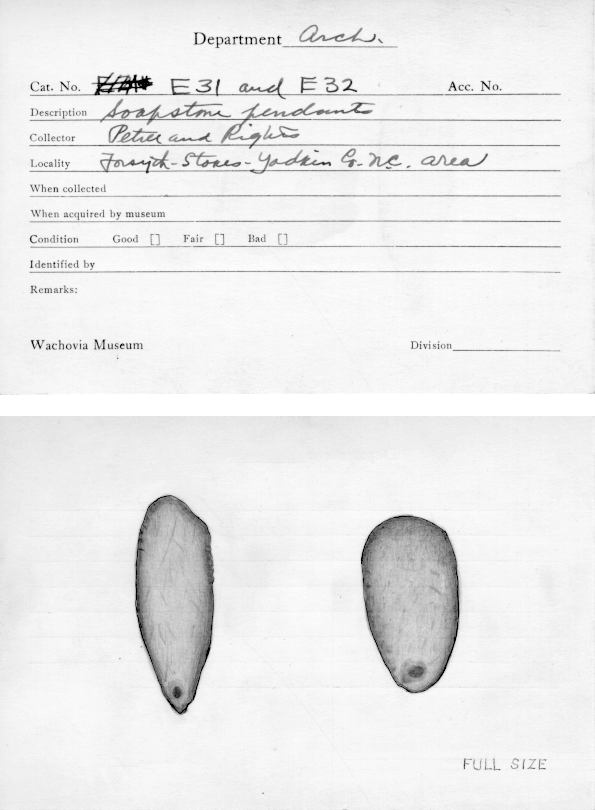 Department Arch.
Cat. No. E31 and E32 Acc. No.
Description Soapstone pendants
Collector Petree and Rights
Locality Forsyth-Stokes-Yadkin Co. N.C. area
When collected
When acquired by museum
Condition Good [] Fair [] Bad []
Identified by
Remarks:
Wachovia Museum Division
FULL SIZE